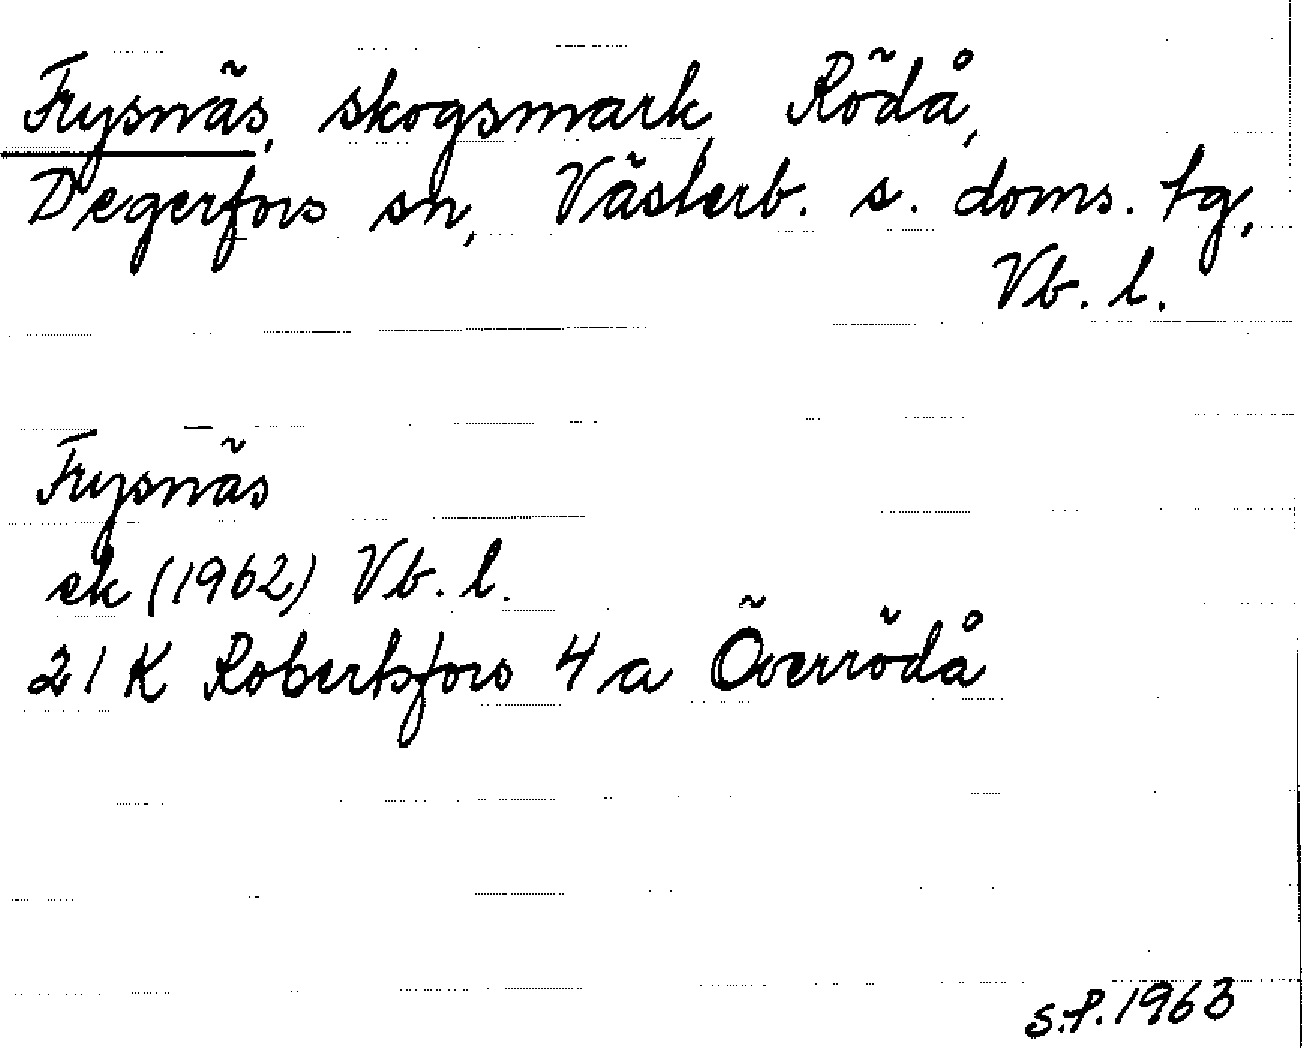 Frysnäs, skogsmark, Rödå,
Degerfors sn, Västerb. s. doms. tg,
Vb. l.
Frysnäs
ek (1962) Vb. l.
21 K Robertsfors 4 a Överrödå
S.P. 1963